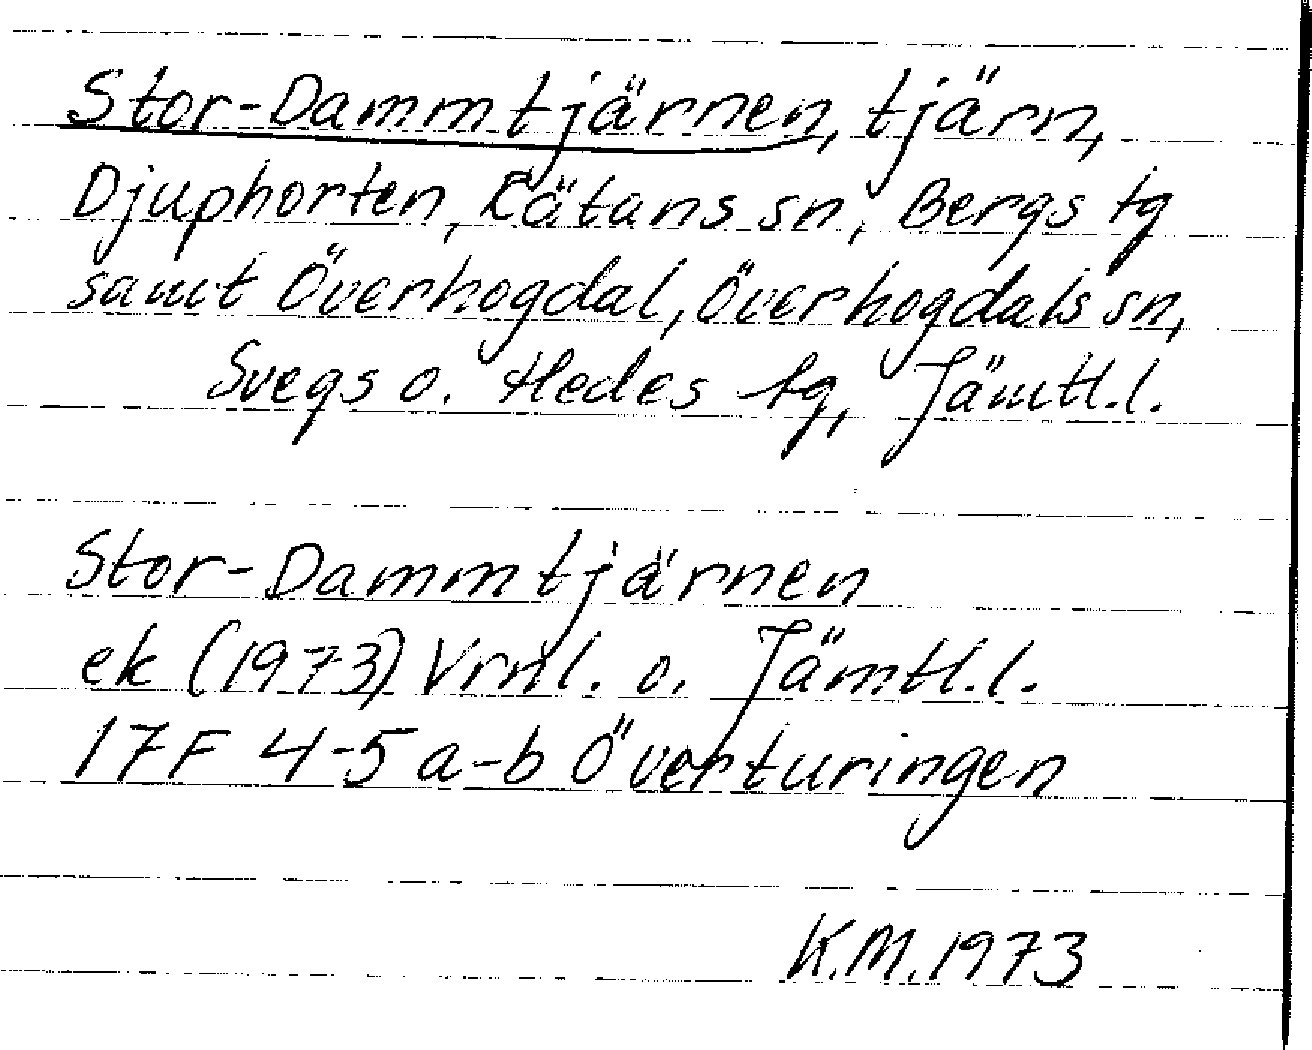 Stor-Dammtjärnen, tjärn,
Djuphorten, Rätans sn, Bergs tg
samt Överhogdal, Överhogdals sn,
Svegs o. Hedes tg, Jämtl.l.
Stor-Dammtjärnen
ek (1973) Vrnl. o. Jämtl.l.
17F 4-5 a-b Överturingen
K.M. 1973